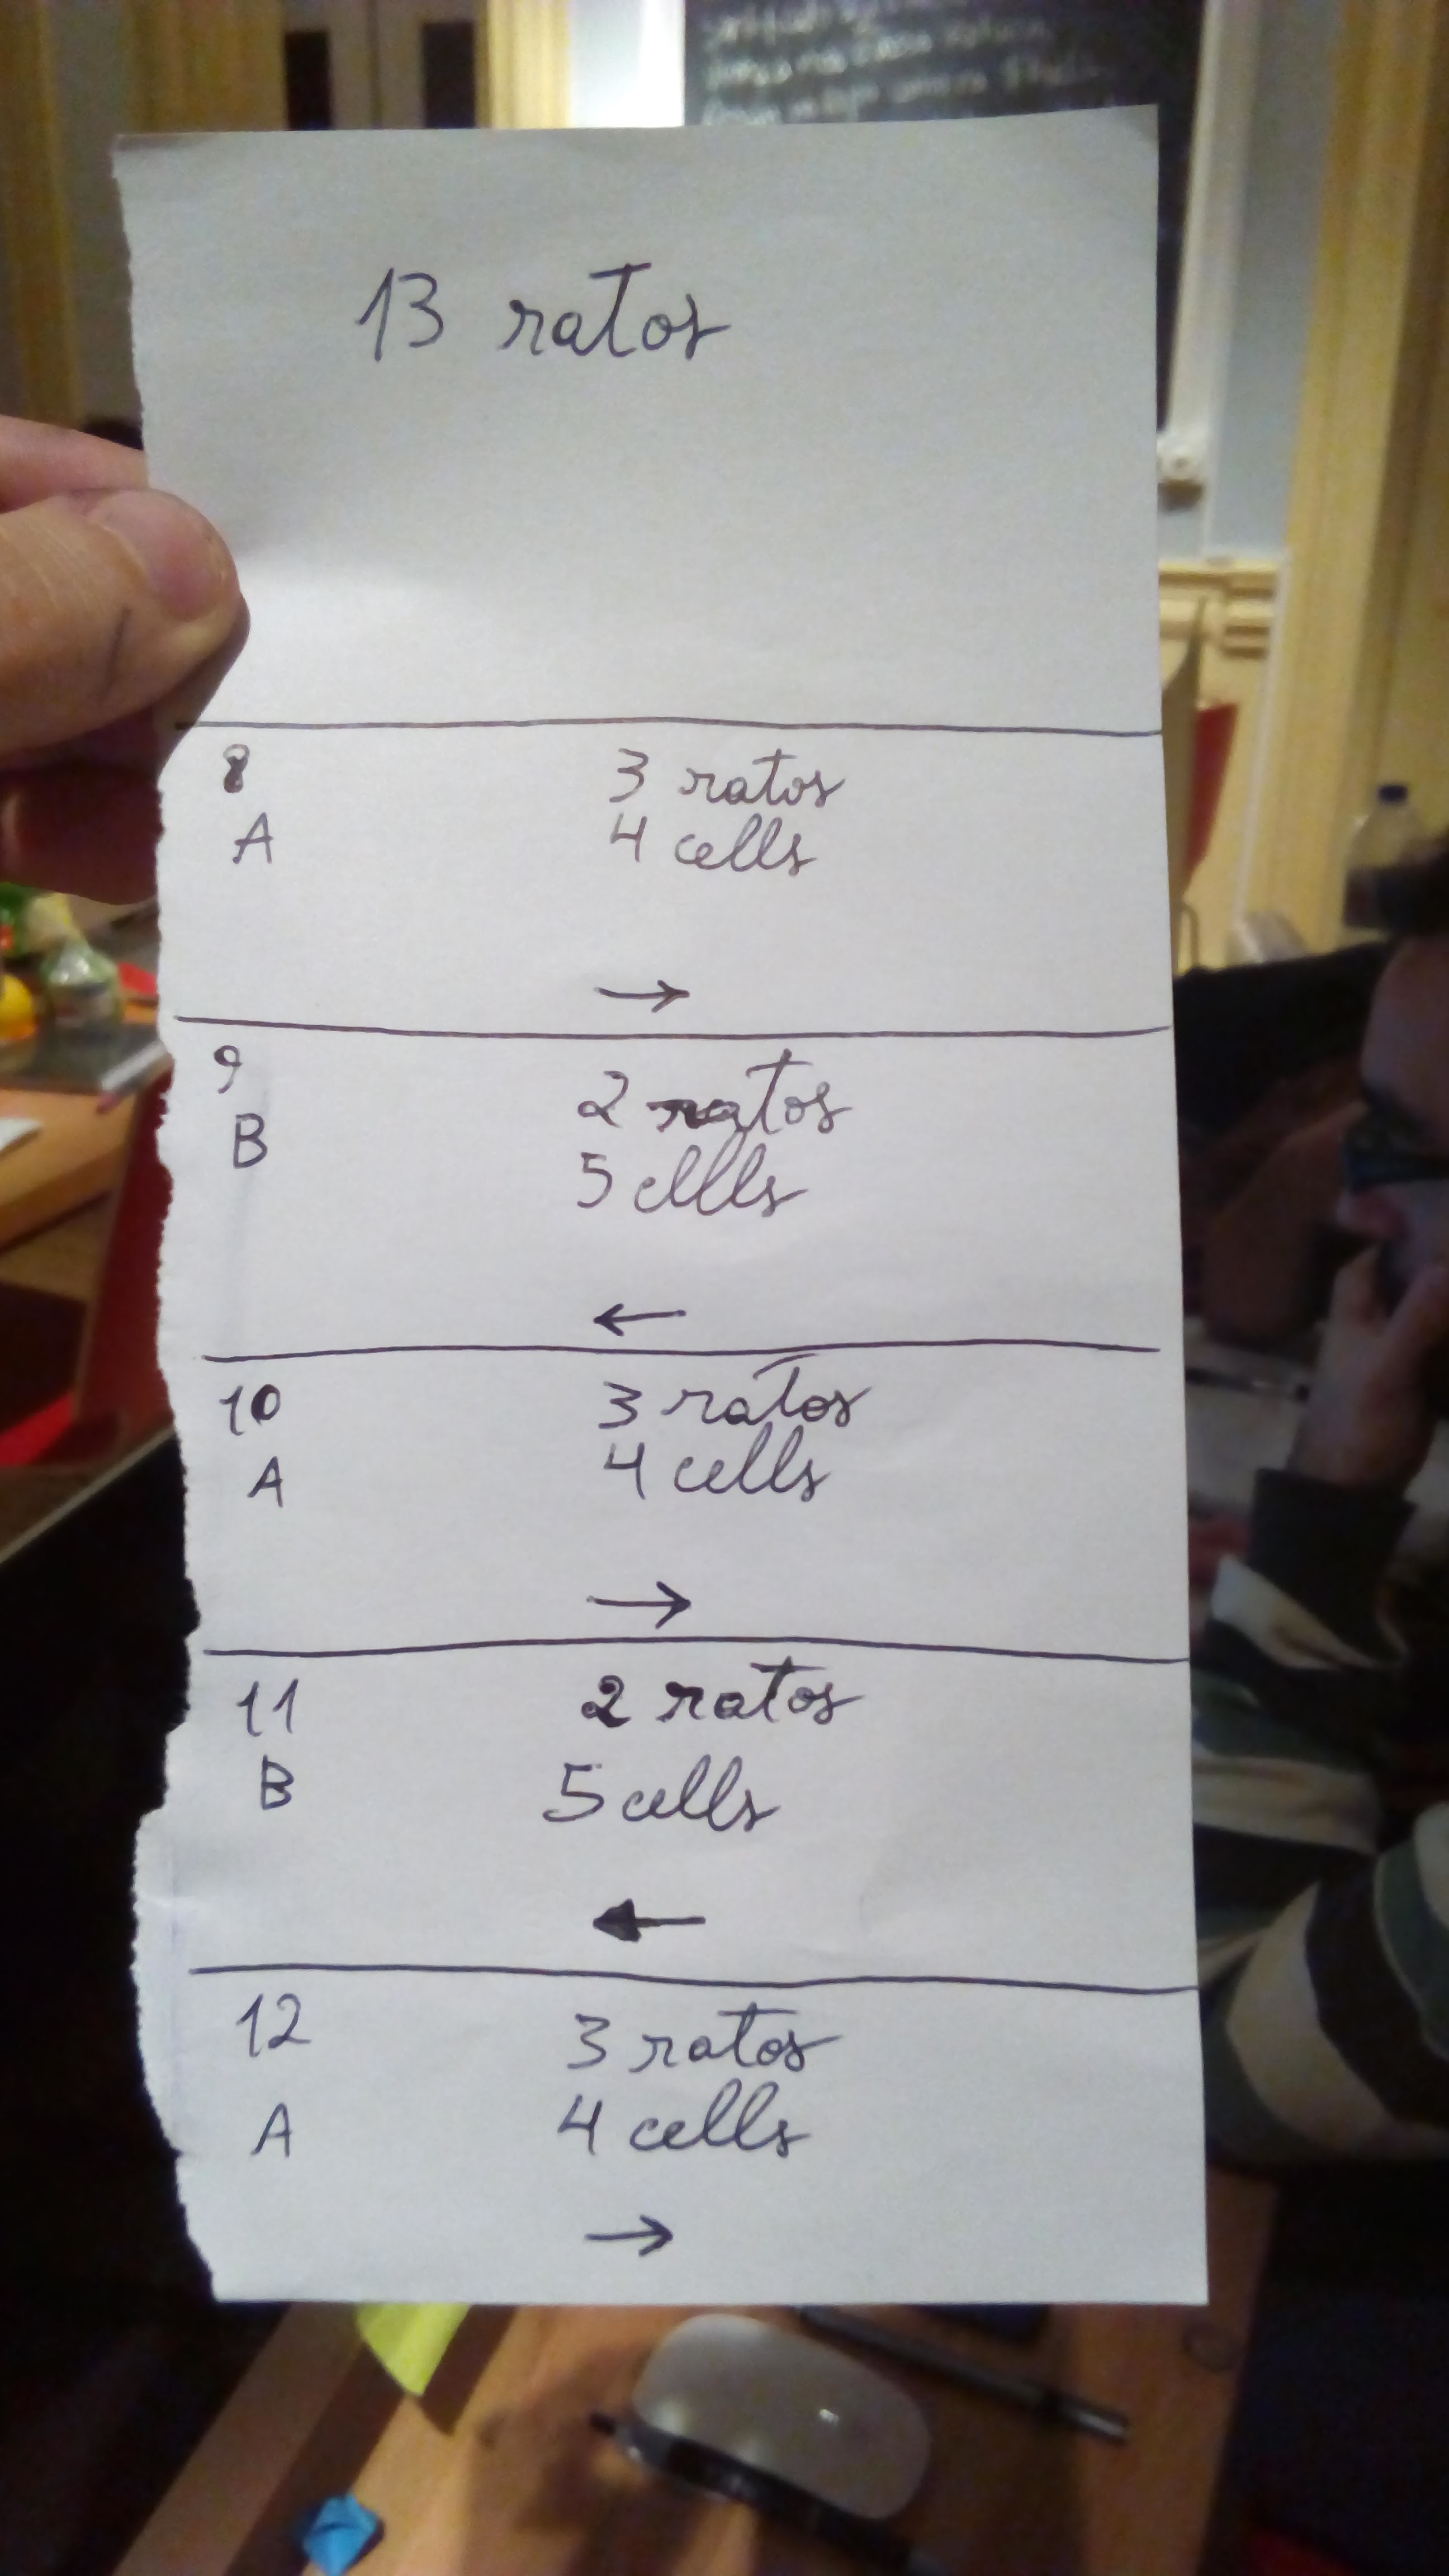 13 ratos
8
3 ratos
A
4 cells
→
9
2 ratos
B
5 cells
←
10
3 ratos
A
4 cells
→
11
2 ratos
B
5 cells
←
12
3 ratos
A
4 cells
→